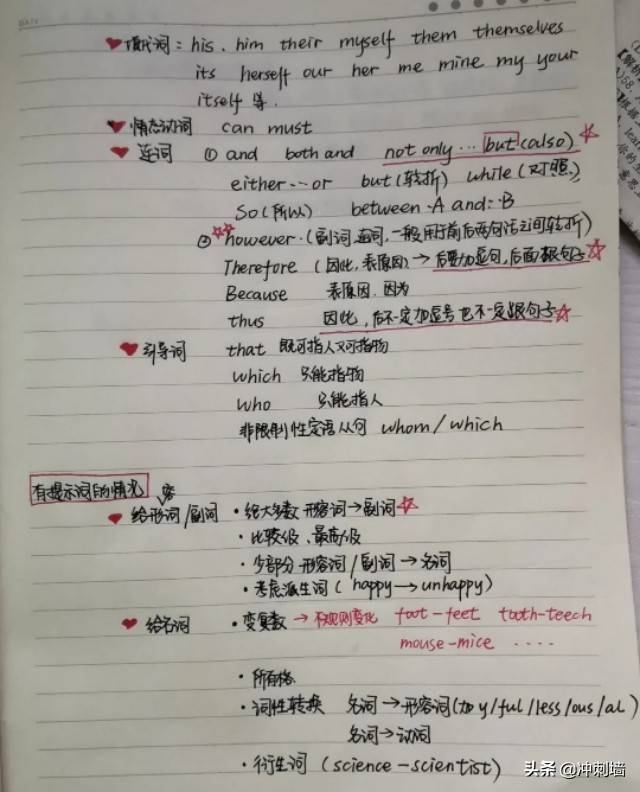 代词：his、him their myself them themselves
its herself our her me mine my your
itself 等.
情态动词 can must
连词 ① and both and not only … but (also)
either -- or but (转折) while (对照.)
So (所以) between ·A and · B
② however · (副词,连词,一般用于前后两句话之间转折)
Therefore (因此,表原因) → 后要加逗号,后面跟句子
Because 表原因.因为
thus 因此,后不一定加逗号也不一定跟句子
引导词 that 既可指人又可指物
which 只能指物
who 只能指人
非限制性定语从句 whom / which
有提示词的情况
给形容词/副词 · 绝大多数 形容词→副词
· 比较级、最高级
· 少部分 形容词/副词 → 名词
· 考虑派生词 ( happy → unhappy)
给名词 · 变复数 → 不规则变化 foot-feet tooth-teech
mouse-mice ····
· 所有格
· 词性转换 名词 → 形容词(加 y/ful/less/ous/al)
名词→动词
· 衍生词 (science - scientist)
头条 @冲刺墙
【解析
58.